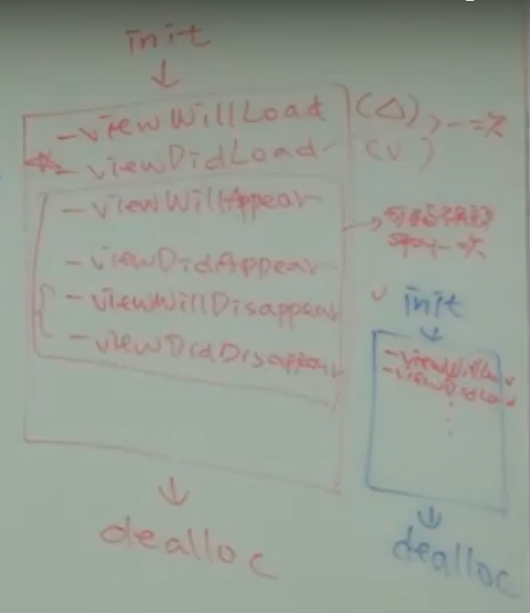 init
↓
-viewWillLoad (△), 一次
-viewDidLoad (v)
-viewWillAppear
-viewDidAppear
-viewWillDisappear
-viewDidDisappear
↓
dealloc
init
↓
-viewWillL
-viewDidLoa
⋮
↓
dealloc